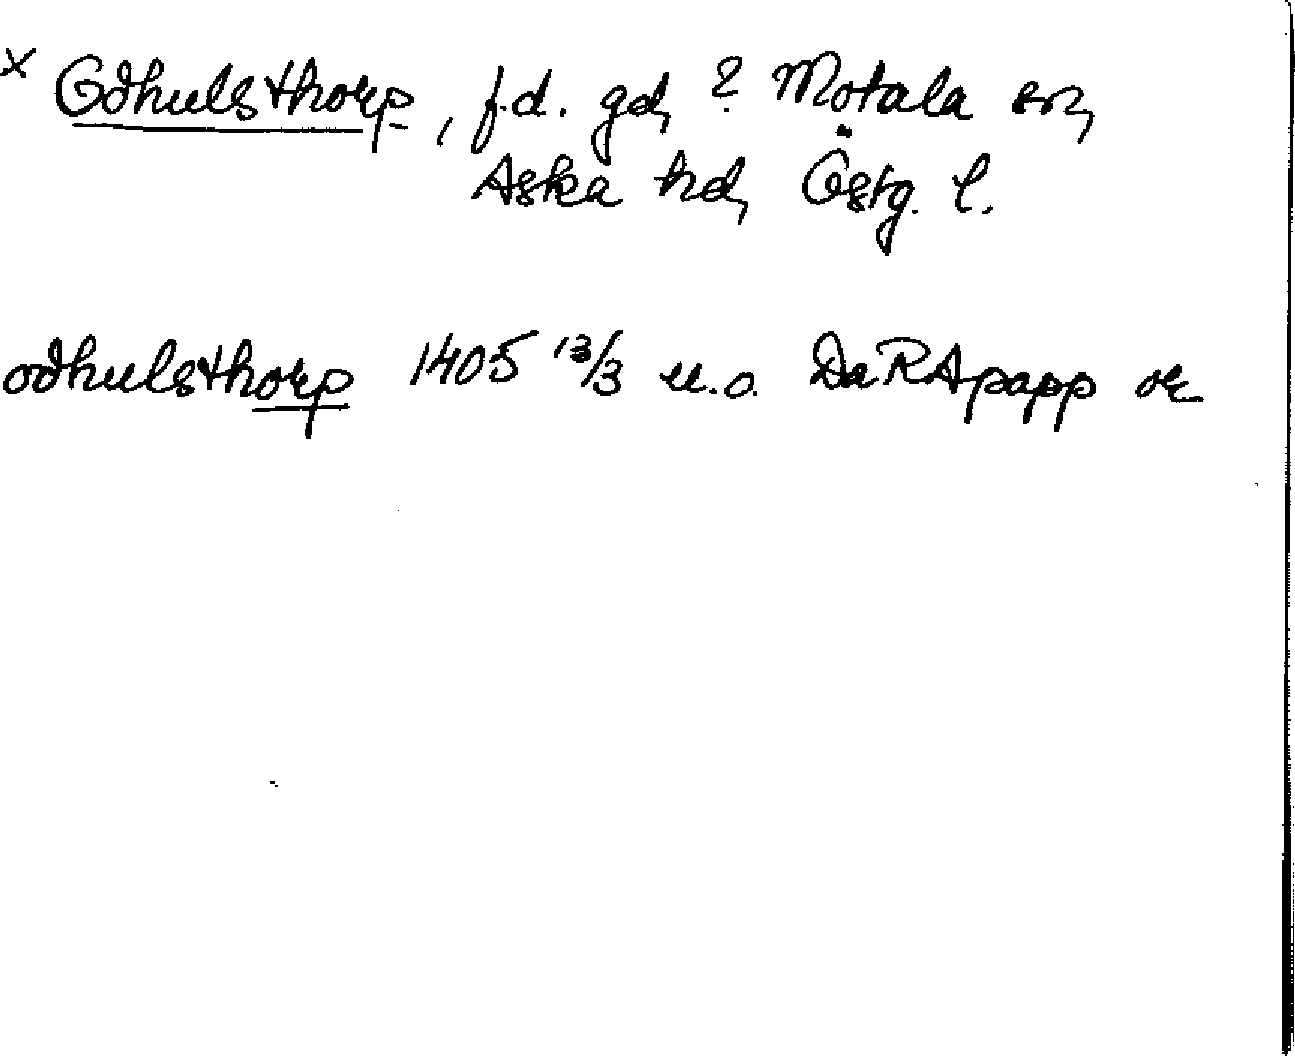 x Odhulsthorp, f.d. gd, ? Motala sn,
Aska hd, Östg. l.
odhulsthorp 1405 13/3 u.o. DaRApapp or